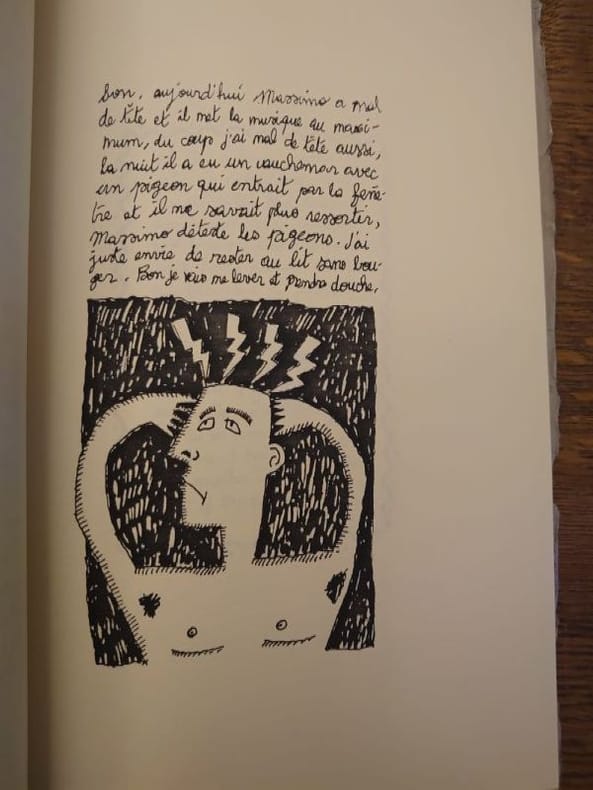 bon, aujourd'hui Massimo a mal
de tête et il met la musique au maxi-
mum, du coup j'ai mal de tête aussi,
la nuit il a eu un cauchemar avec
un pigeon qui entrait par la fenê-
tre et il ne savait plus ressortir,
Massimo déteste les pigeons. J'ai
juste envie de rester au lit sans bou-
ger. Bon je vais me lever et prendre douche,